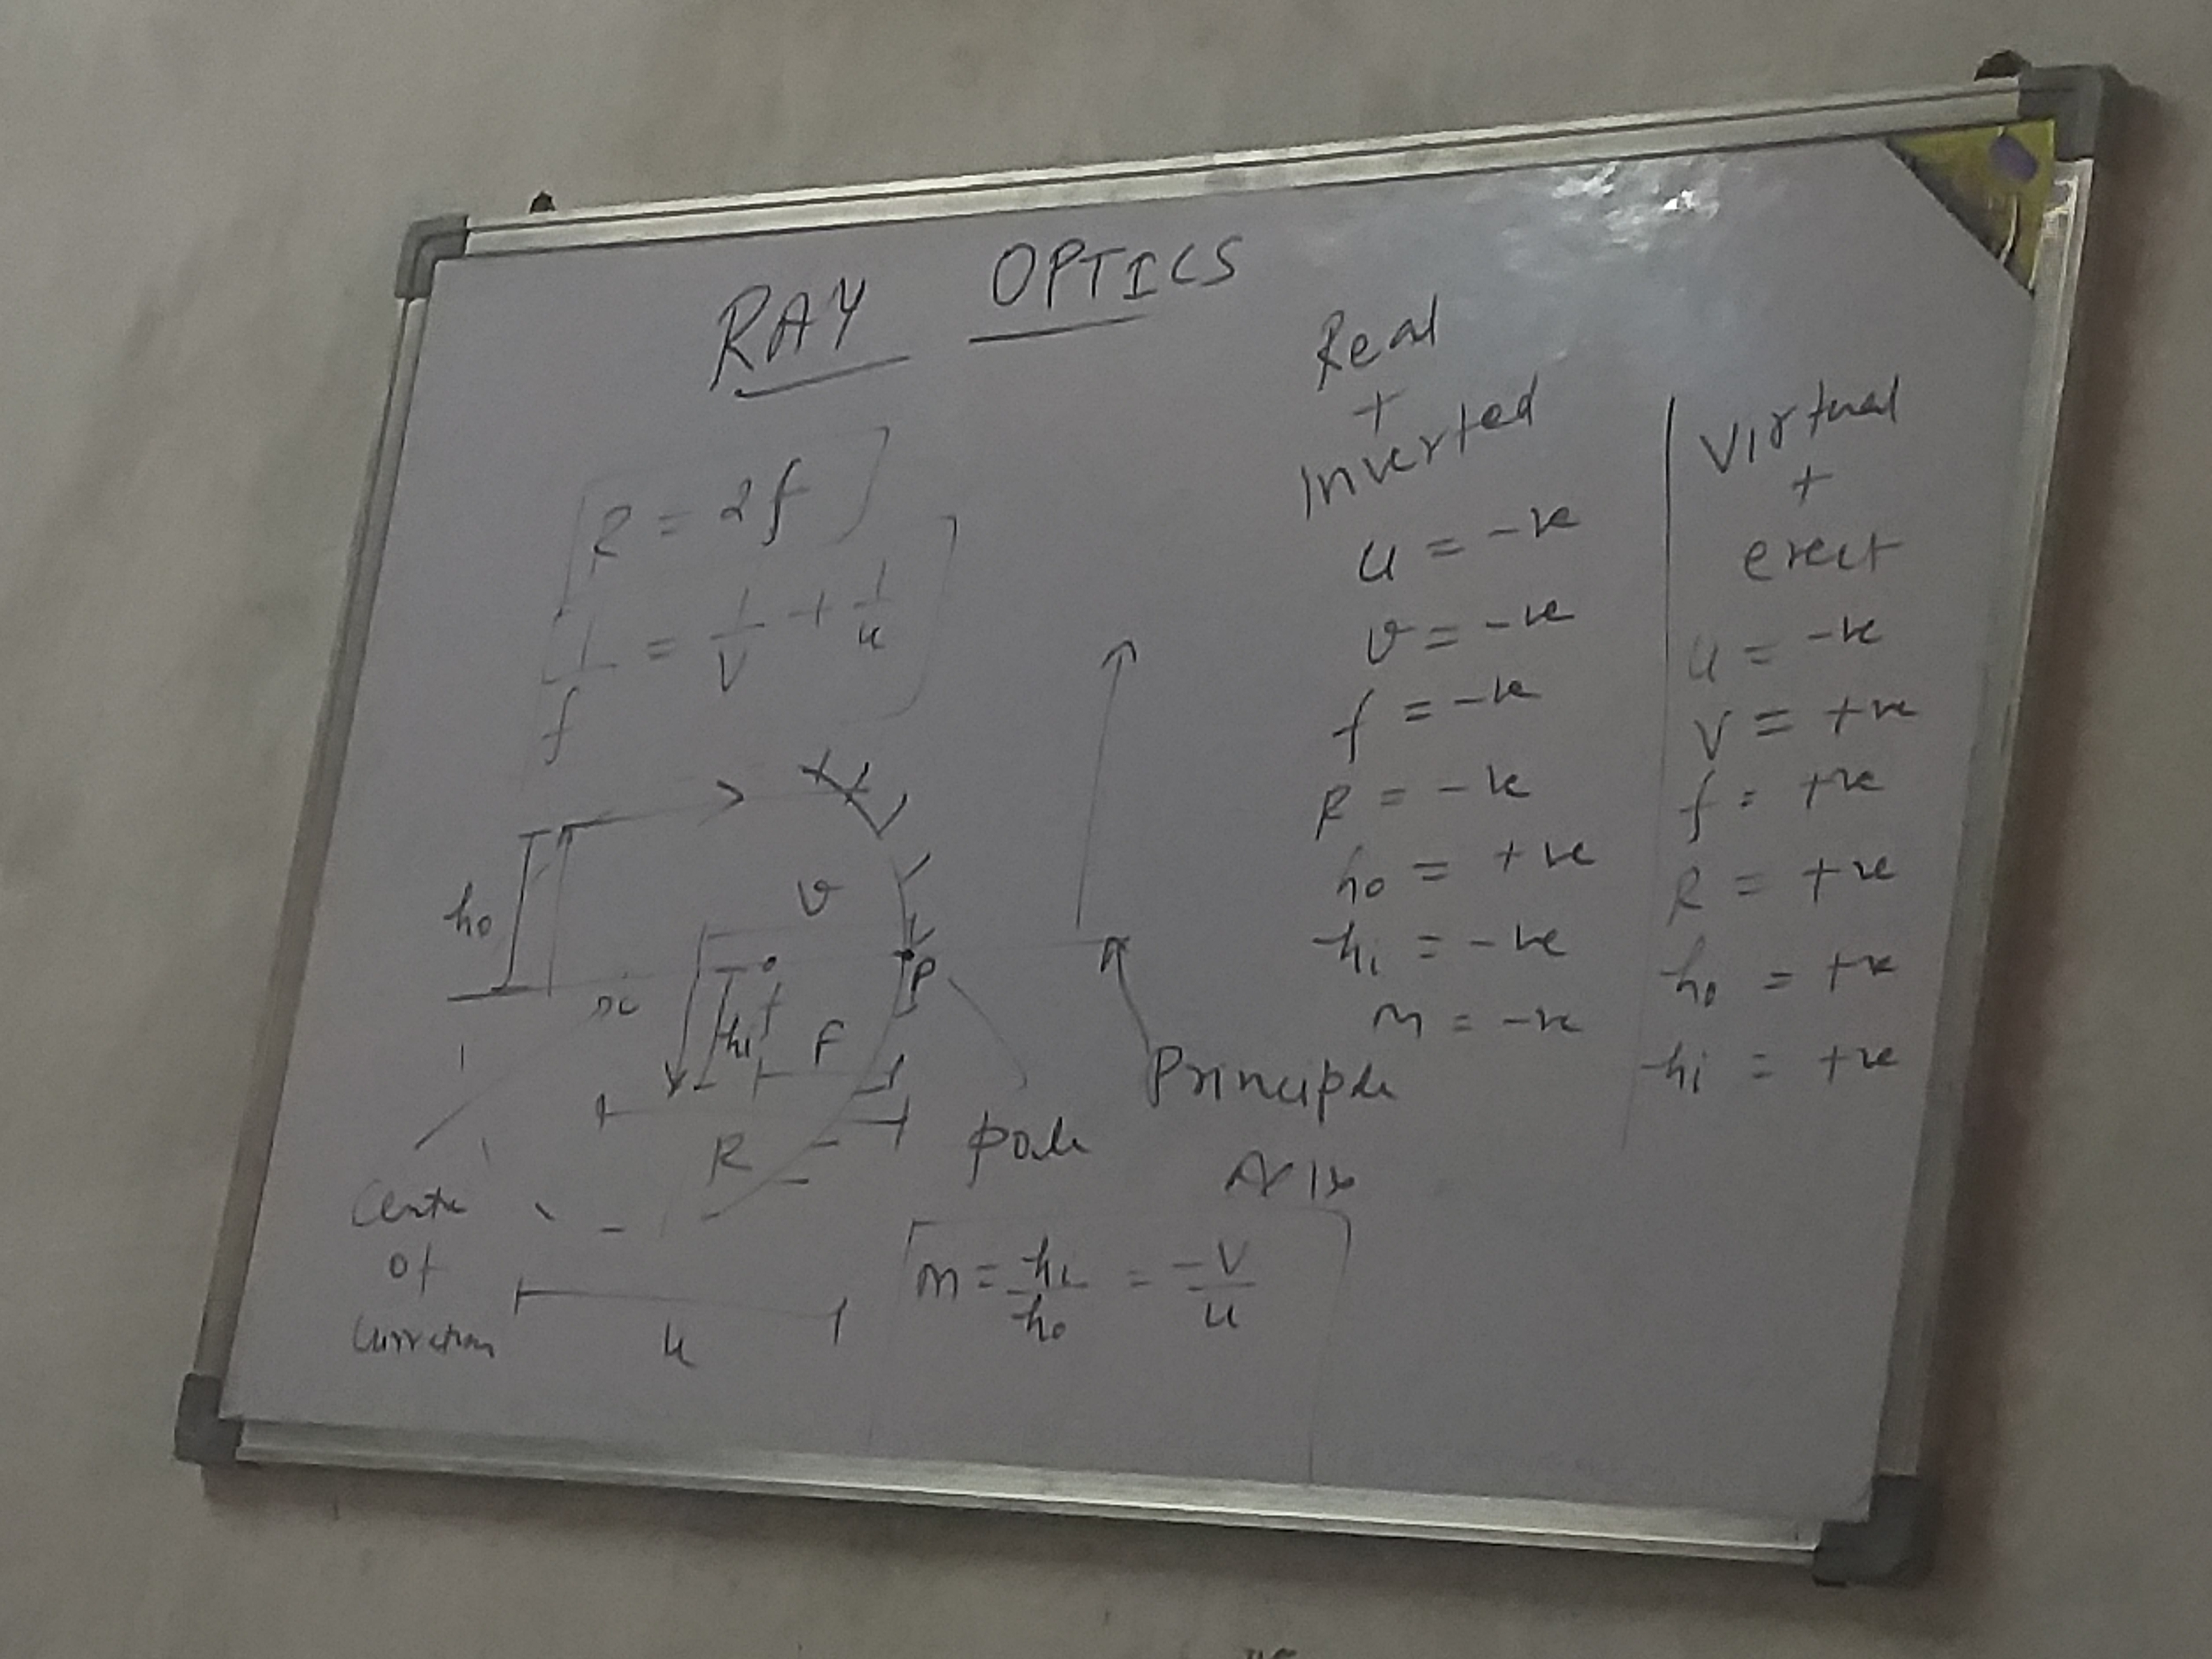 RAY OPTICS
R = 2f
1/f = 1/v + 1/u
h₀
v
P
hi
f
F
R
u
Centre
of
pole
Principle
Axis
m = hi/h₀ = -v/u
Real
+
Inverted
u = -ve
v = -ve
f = -ve
R = -ve
h₀ = +ve
hi = -ve
m = -ve
Virtual
+
erect
u = -ve
v = +ve
f = +ve
R = +ve
h₀ = +ve
hi = +ve